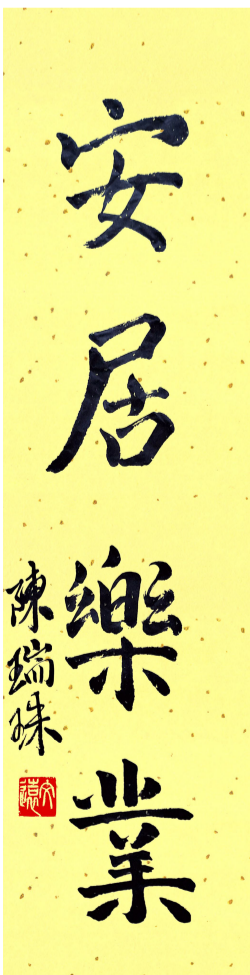 安居樂業
陳瑞珠